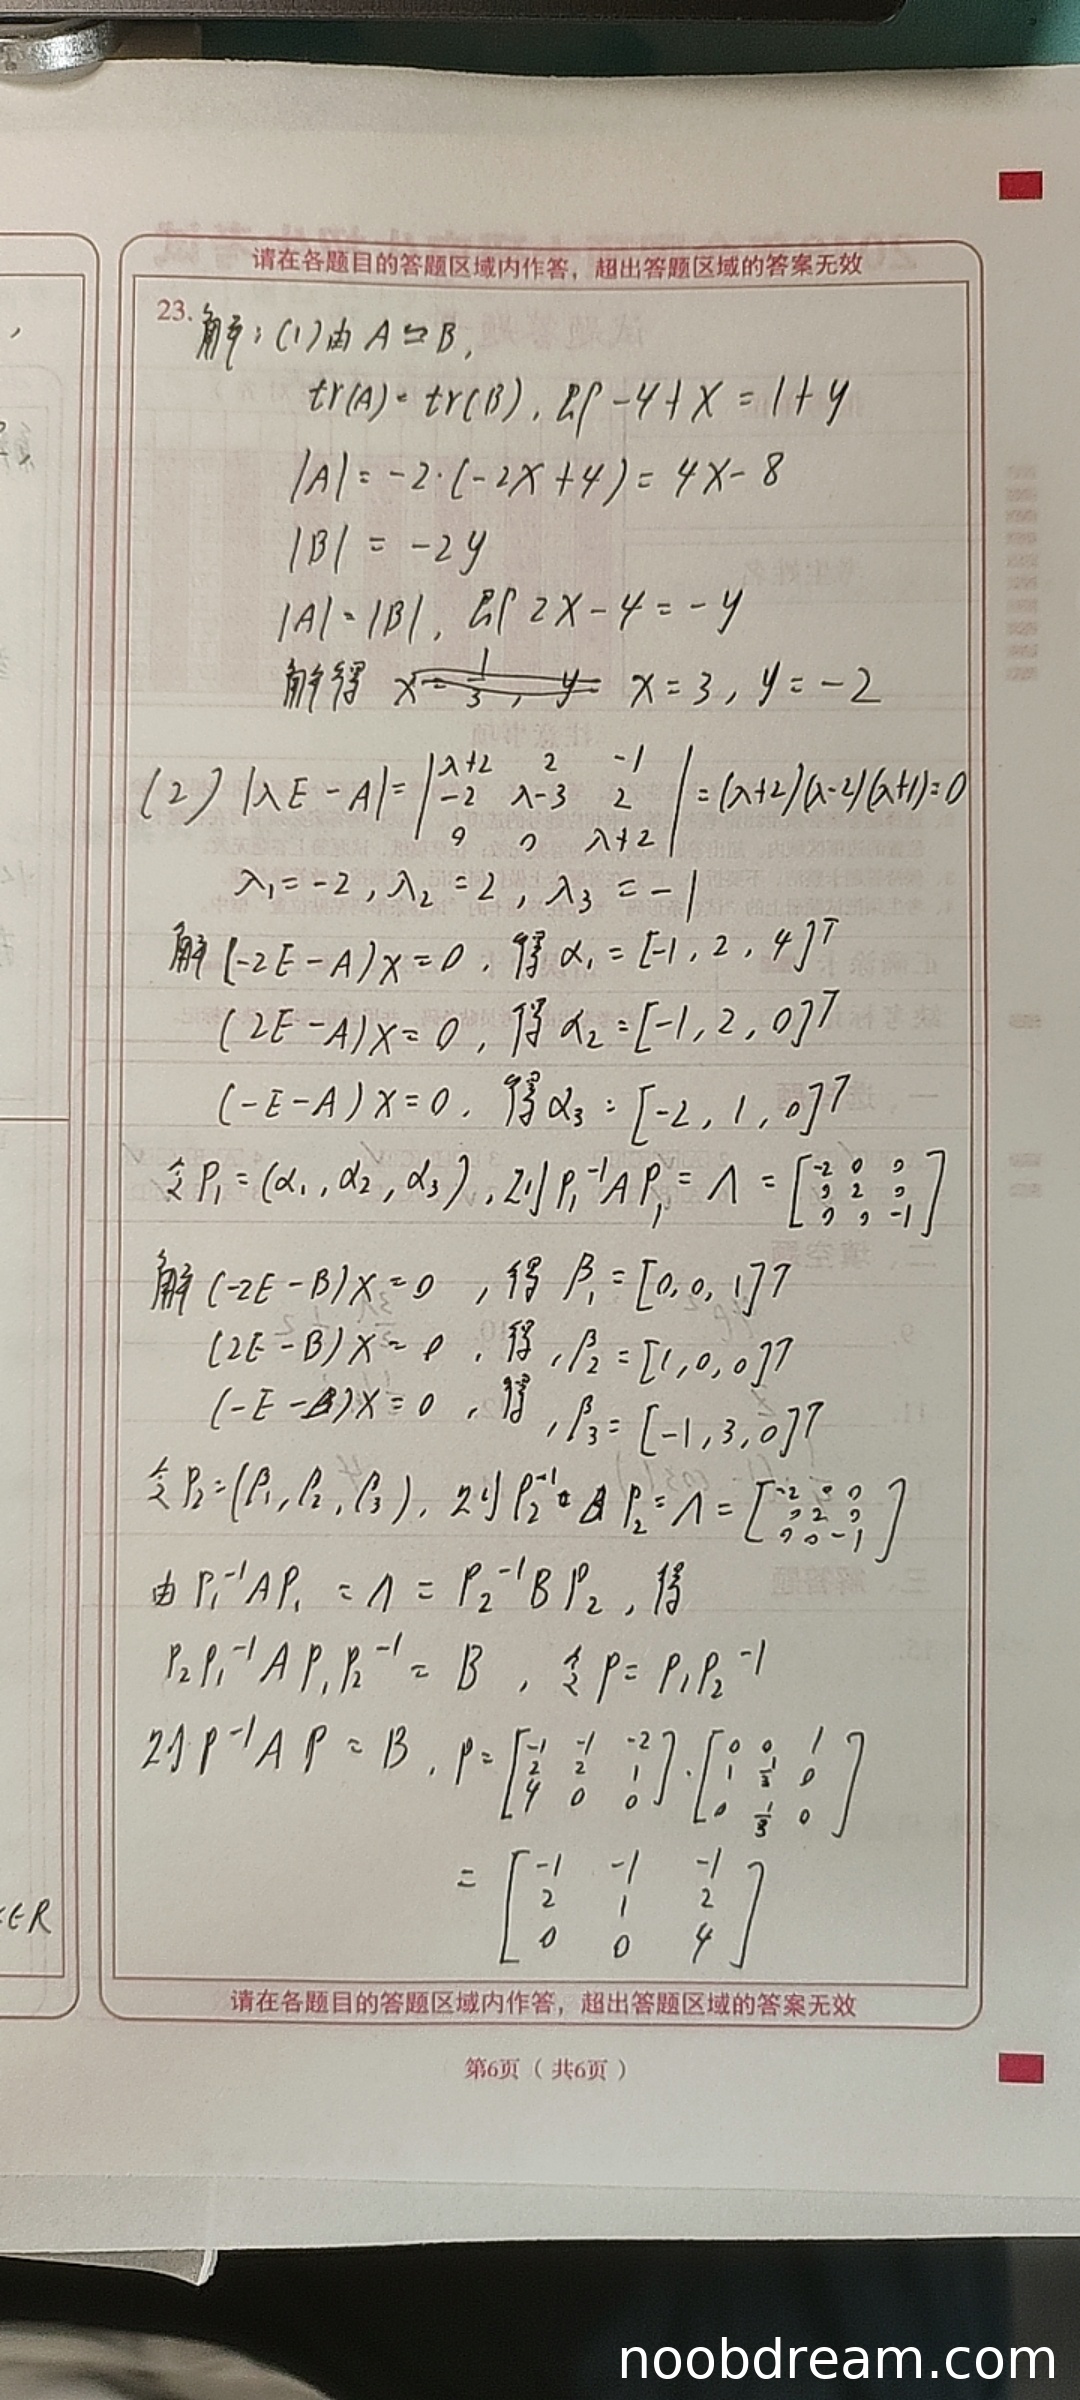 请在各题目的答题区域内作答，超出答题区域的答案无效
23. 解：(1)由 A≌B,
tr(A) = tr(B), 即 -4+x = 1+y
|A| = -2·(-2x+4) = 4x-8
|B| = -2y
|A| = |B|, 即 2x-4 = -y
解得 x=3, y=-2
(2) |λE-A| = | λ+2 2 -1 ; -2 λ-3 2 ; 0 0 λ+2 | = (λ+2)(λ-2)(λ+1)=0
λ₁=-2, λ₂=2, λ₃=-1
解(-2E-A)x=0, 得 α₁=[-1, 2, 4]ᵀ
(2E-A)x=0, 得 α₂=[-1, 2, 0]ᵀ
(-E-A)x=0, 得 α₃=[-2, 1, 0]ᵀ
令P₁=(α₁, α₂, α₃), 则P₁⁻¹AP₁=Λ=[-2 0 0 ; 0 2 0 ; 0 0 -1]
解(-2E-B)x=0, 得 β₁=[0, 0, 1]ᵀ
(2E-B)x=0, 得, β₂=[1, 0, 0]ᵀ
(-E-B)x=0, 得, β₃=[-1, 3, 0]ᵀ
令P₂=(β₁, β₂, β₃), 则P₂⁻¹BP₂=Λ=[-2 0 0 ; 0 2 0 ; 0 0 -1]
由P₁⁻¹AP₁=Λ=P₂⁻¹BP₂, 得
P₂P₁⁻¹AP₁P₂⁻¹=B, 令P=P₁P₂⁻¹
则P⁻¹AP=B, P=[-1 -1 -2 ; 2 2 1 ; 4 0 0]·[0 0 1 ; 1 1/3 0 ; 0 1/3 0]
=[-1 -1 -1 ; 2 1 2 ; 0 0 4]
∈R
请在各题目的答题区域内作答，超出答题区域的答案无效
第6页（共6页）
noobdream.com